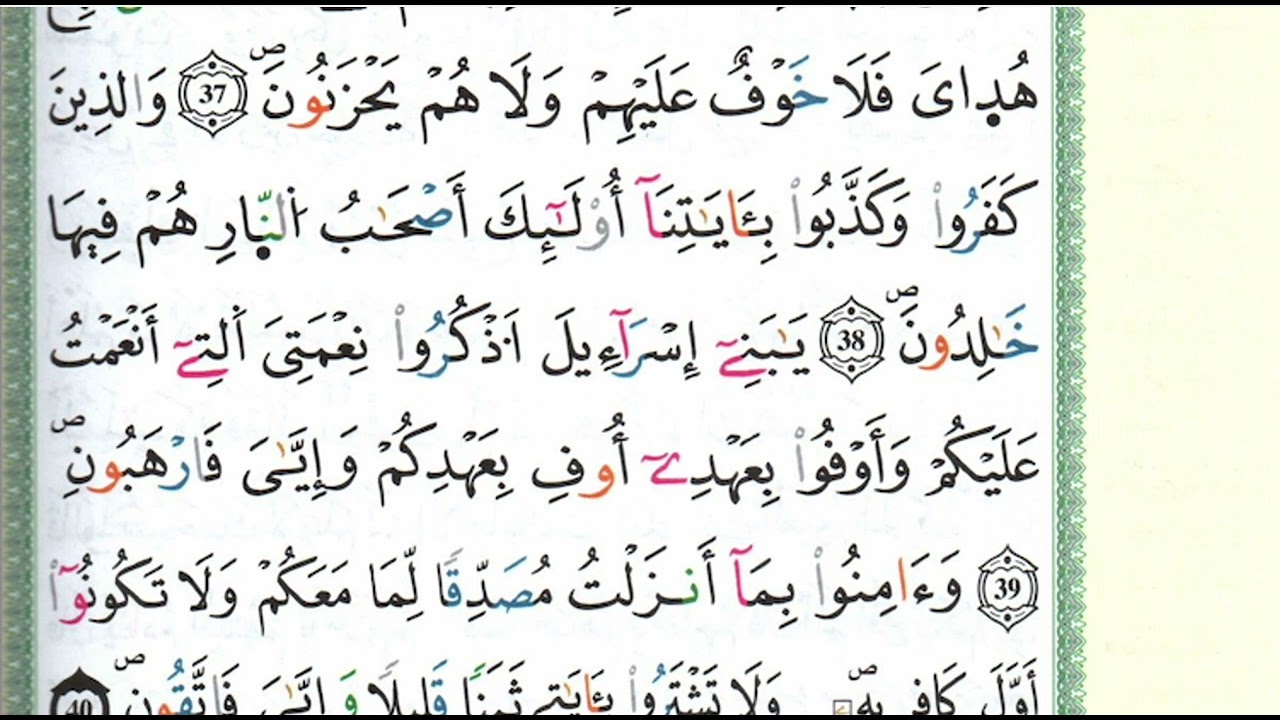 هُدِاىَ فَلَا خَوْفٌ عَلَيْهِمْ وَلَا هُمْ يَحْزَنُونَۖ 37 وَالذِينَ
كَفَرُواْ وَكَذَّبُواْ بِـَٔايَٰتِنَآ أُوْلَٰٓئِكَ أَصْحَٰبُ اُ۬لنّ۪ارِ هُمْ فِيهَا
خَٰلِدُونَۖ 38 يَٰبَنِےٓ إِسْرَآءِيلَ اَ۟ذْكُرُواْ نِعْمَتِىَ اَ۬لتِےٓ أَنْعَمْتُ
عَلَيْكُمْ وَأَوْفُواْ بِعَهْدِےٓ أُوفِ بِعَهْدِكُمْ وَإِيَّٰىَ فَارْهَبُونِۖ
39 وَءَامِنُواْ بِمَآ أَنزَلْتُ مُصَدِّقًا لِّمَا مَعَكُمْ وَلَا تَكُونُوٓاْ
أَوَّلَ كَافِرِۢ بِهِۦۖ وَلَا تَشْتَرُواْ بِـَٔايَٰتِے ثَمَنًا قَلِيلًا وَإِيَّٰىَ فَاتَّقُونِۖ 40